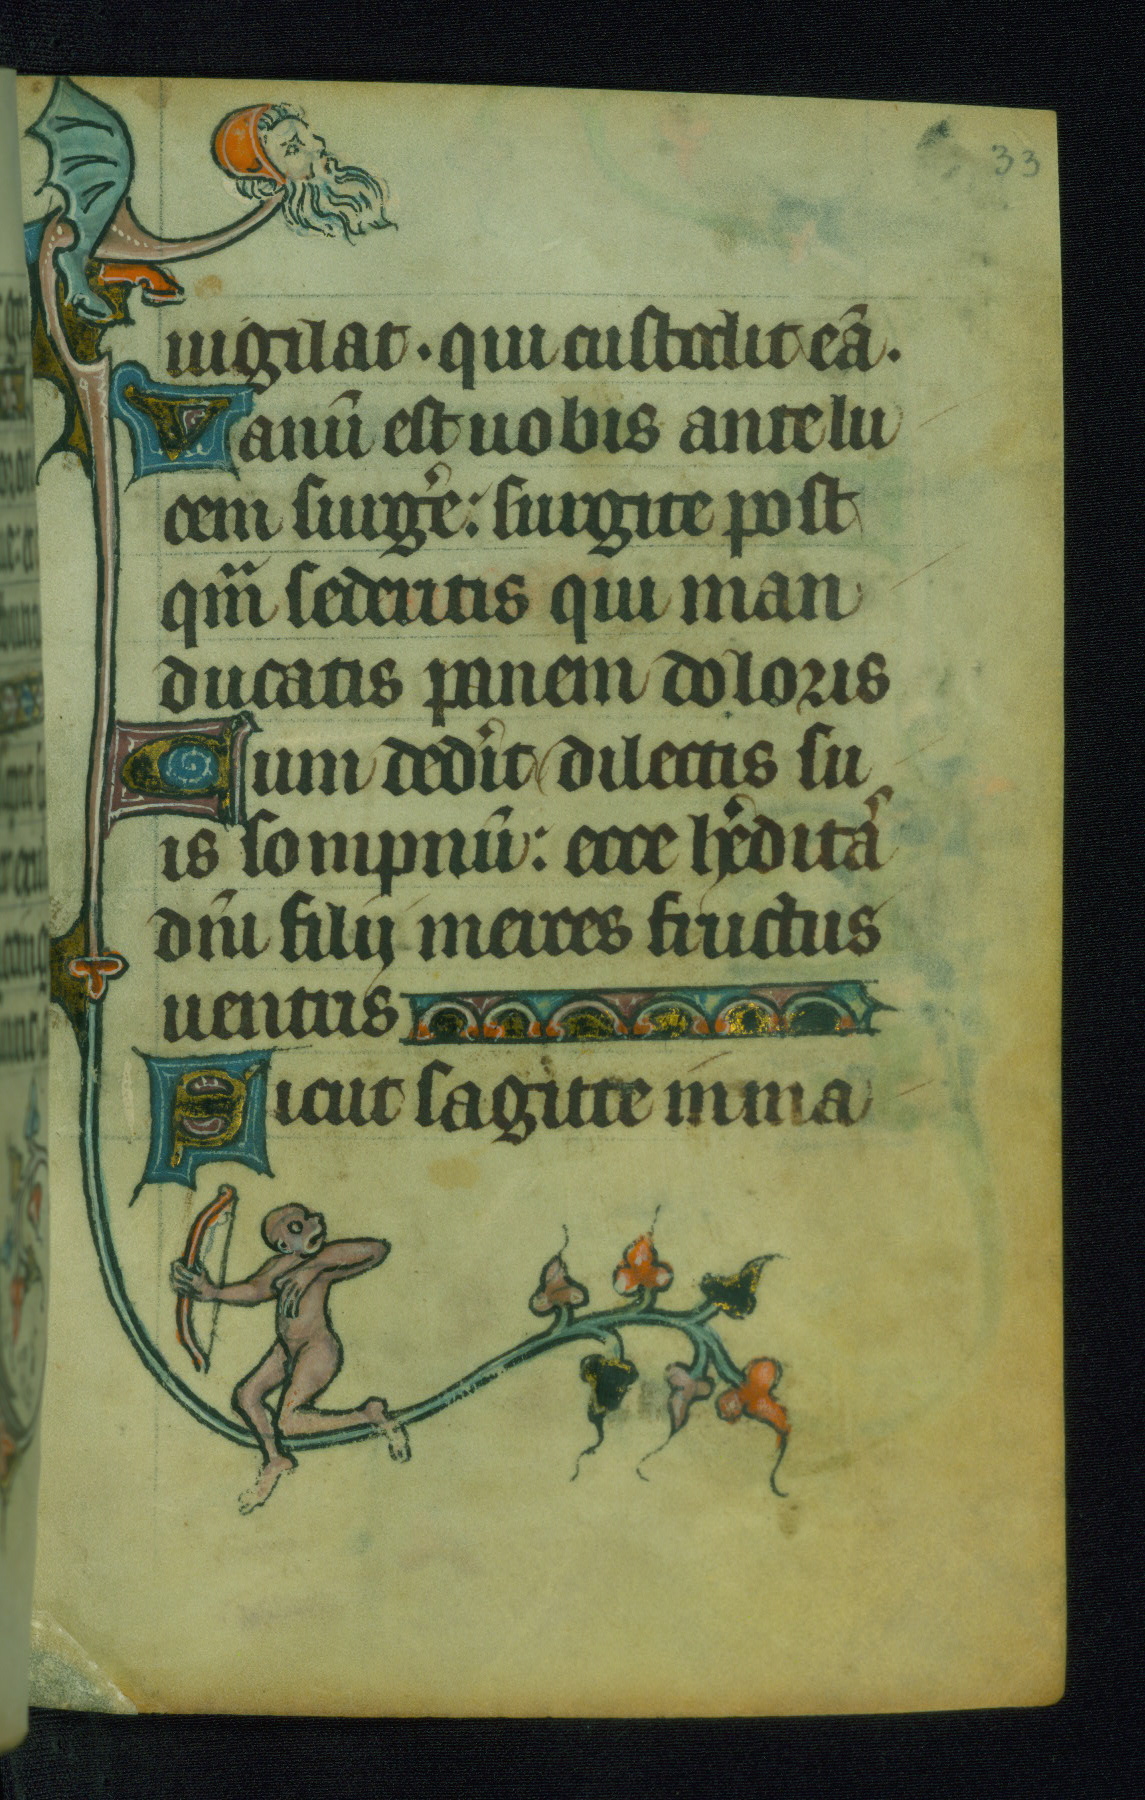 33
uigilat · qui custodit eā.
Vanū est uobis ante lu
cem surgͤe: surgite post
qm̄ sederitis qui man
ducatis panem doloris
Cum dedit dilectis su
is sompnū: ecce hͤditas
dn̄i filij merces fructus
uentris
Sicut sagitte in ma